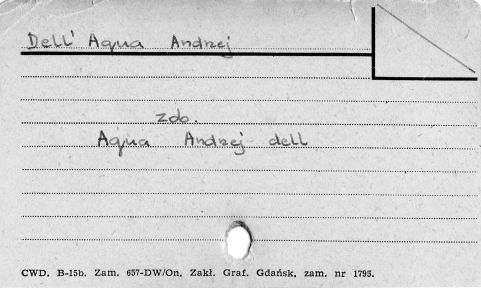 Dell' Aqua Andrzej
zob.
Aqua Andrzej dell
CWD. B-15b. Zam. 657-DW/On. Zakł. Graf. Gdańsk, zam. nr 1795.